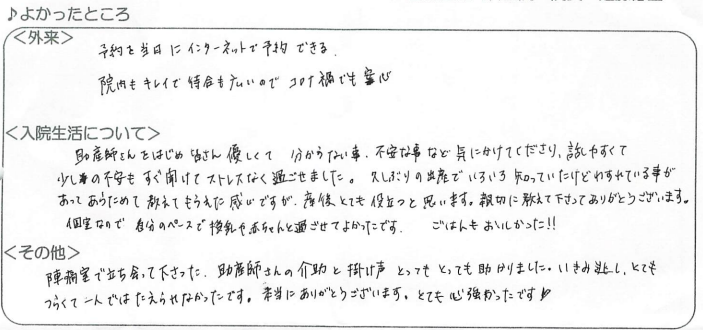 ♪よかったところ
＜外来＞
予約を当日にインターネットで予約できる.
院内もキレイで待合も広いのでコロナ禍でも安心
＜入院生活について＞
助産師さんをはじめ皆さん優しくて 分からない事、不安な事など気にかけてくださり、話しやすくて
少しの不安もすぐ聞けてストレスなく過ごせました。久しぶりの出産でいろいろ知っていたけどわすれている事が
あってあらためて教えてもらえた感じですが、産後とても役立つと思います。親切に教えて下さってありがとうございます。
個室なので自分のペースで授乳や赤ちゃんと過ごせてよかったです. ごはんもおいしかった!!
＜その他＞
陣痛室で立ち会って下さった、助産師さんの介助と掛け声とってもとっても助かりました。いきみ逃し、とても
つらくて一人ではたえられなかったです。本当にありがとうございます。とても心強かったです